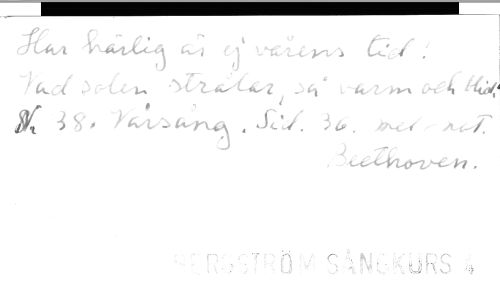 Hur härlig är ej vårens tid!
Vad solen strålar, så varm och blid.
N. 38. Vårsång. Sid. 36. met. not.
Beethoven.
BERGSTRÖM SÅNGKURS 4